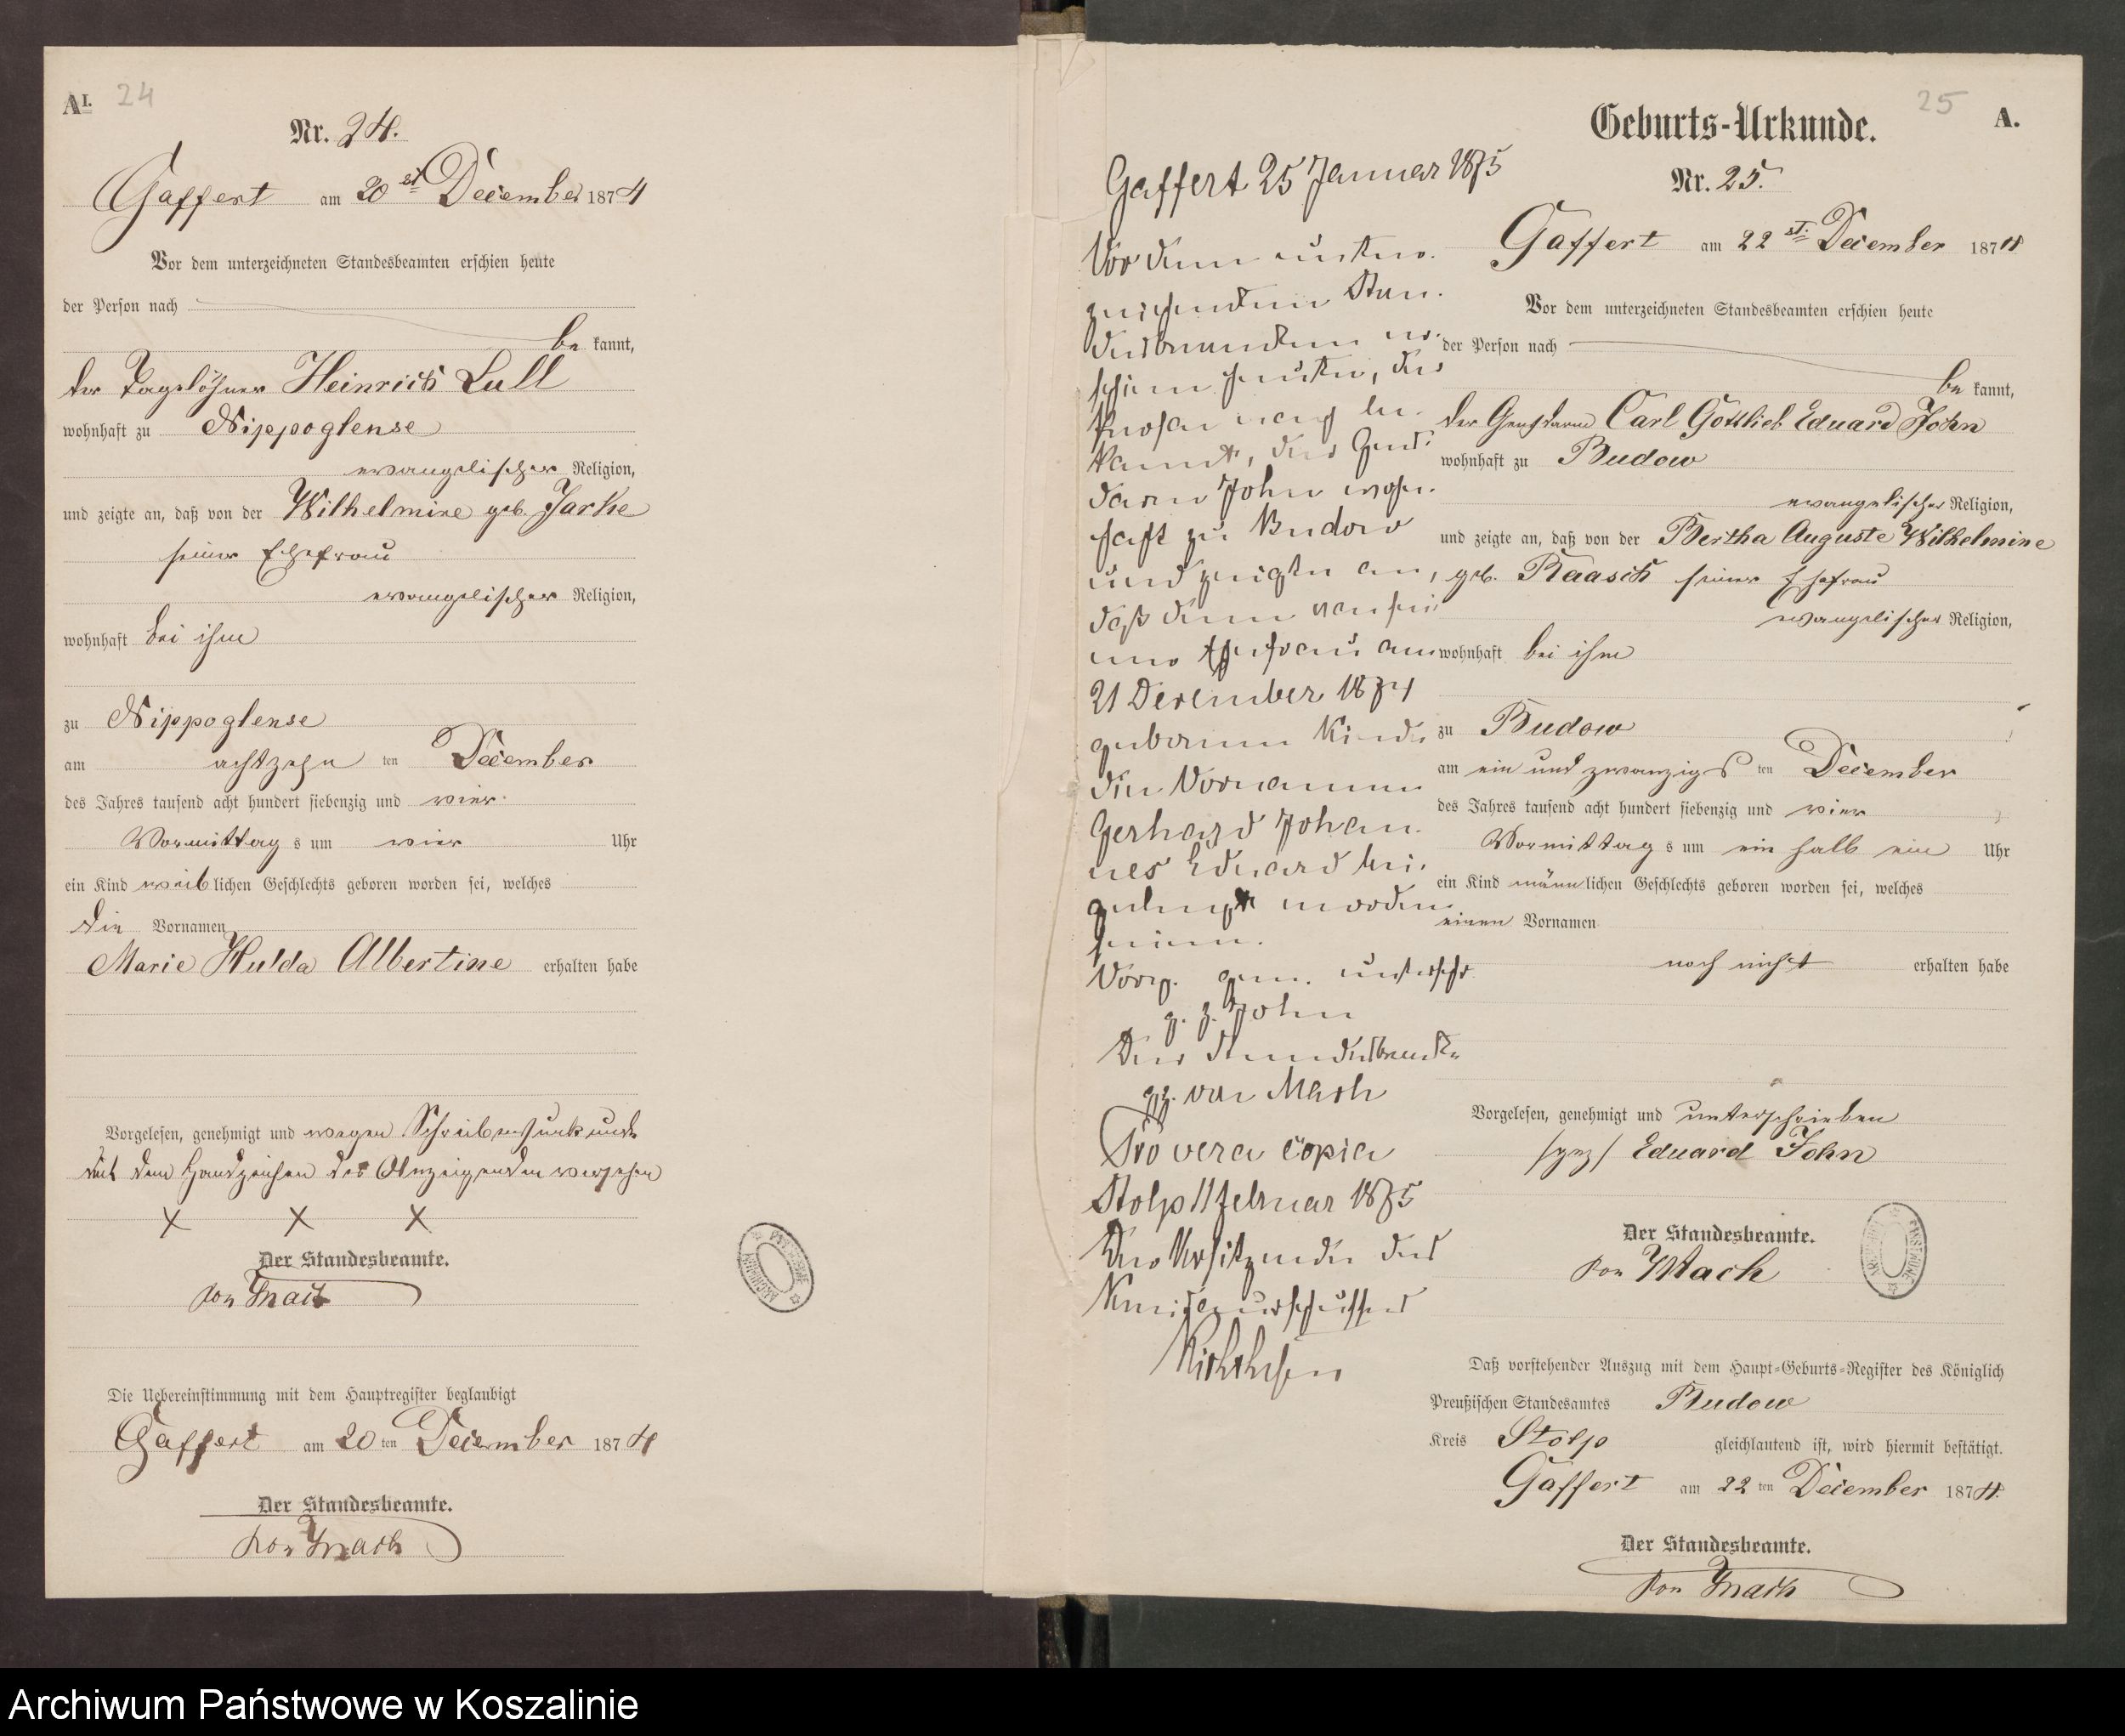 A I. 24
Nr. 24.
Gaffert am 20 st December 1874
Vor dem unterzeichneten Standesbeamten erschien heute
der Person nach
be kannt,
der Tagelöhner Heinrich Lull
wohnhaft zu Nippoglense
evangelischer Religion,
und zeigte an, daß von der Wilhelmine geb. Jarke
seiner Ehefrau
evangelischer Religion,
wohnhaft bei ihm
zu Nippoglense
am achtzehn ten December
des Jahres tausend acht hundert siebenzig und vier
Vormittag s um vier Uhr
ein Kind weiblichen Geschlechts geboren worden sei, welches
die Vornamen
Marie Hulda Albertine erhalten habe
Vorgelesen, genehmigt und wegen Schreibensunkunde
mit dem Handzeichen des Anzeigenden versehen
X X X
Der Standesbeamte.
von Mach
Die Uebereinstimmung mit dem Hauptregister beglaubigt
Gaffert am 20 ten December 1874
Der Standesbeamte.
von Mach
ARCHIWUM PAŃSTWOWE
Gaffert 25 Januar 1875
Vor dem unter-
zeichneten Stan-
desbeamten er-
schien heute, der
Person nach be-
kannt, der Gens-
darm John wohn-
haft zu Budow
und zeigte an,
daß dem von sei-
ner Ehefrau am
21 December 1874
geborenen Kinde
die Vornamen
Gerhard Johan-
nes Eduard bei-
gelegt worden
seien.
Vorg. gen. unterschr.
g. z. John
Der Standesbeamte
gz. von Mach
Pro vera copia
Stolp 11 Februar 1875
Der Vorsitzende des
Kreisausschusses
25 A.
Geburts-Urkunde.
Nr. 25.
Gaffert am 22 st. December 1874
Vor dem unterzeichneten Standesbeamten erschien heute
der Person nach
be kannt,
der Gensdarm Carl Gottlieb Eduard John
wohnhaft zu Budow
evangelischer Religion,
und zeigte an, daß von der Bertha Auguste Wilhelmine
geb. Raasch seiner Ehefrau
evangelischer Religion,
wohnhaft bei ihm
zu Budow
am ein und zwanzigs ten December
des Jahres tausend acht hundert siebenzig und vier
Vormittag s um ein halb ein Uhr
ein Kind männlichen Geschlechts geboren worden sei, welches
einen Vornamen
noch nicht erhalten habe
Vorgelesen, genehmigt und unterschrieben
/gez/ Eduard John
Der Standesbeamte.
von Mach
ARCHIWUM PAŃSTWOWE
Daß vorstehender Auszug mit dem Haupt-Geburts-Register des Königlich
Preußischen Standesamtes Budow
Kreis Stolp gleichlautend ist, wird hiermit bestätigt.
Gaffert am 22 ten December 1874.
Der Standesbeamte.
von Mach
Archiwum Państwowe w Koszalinie